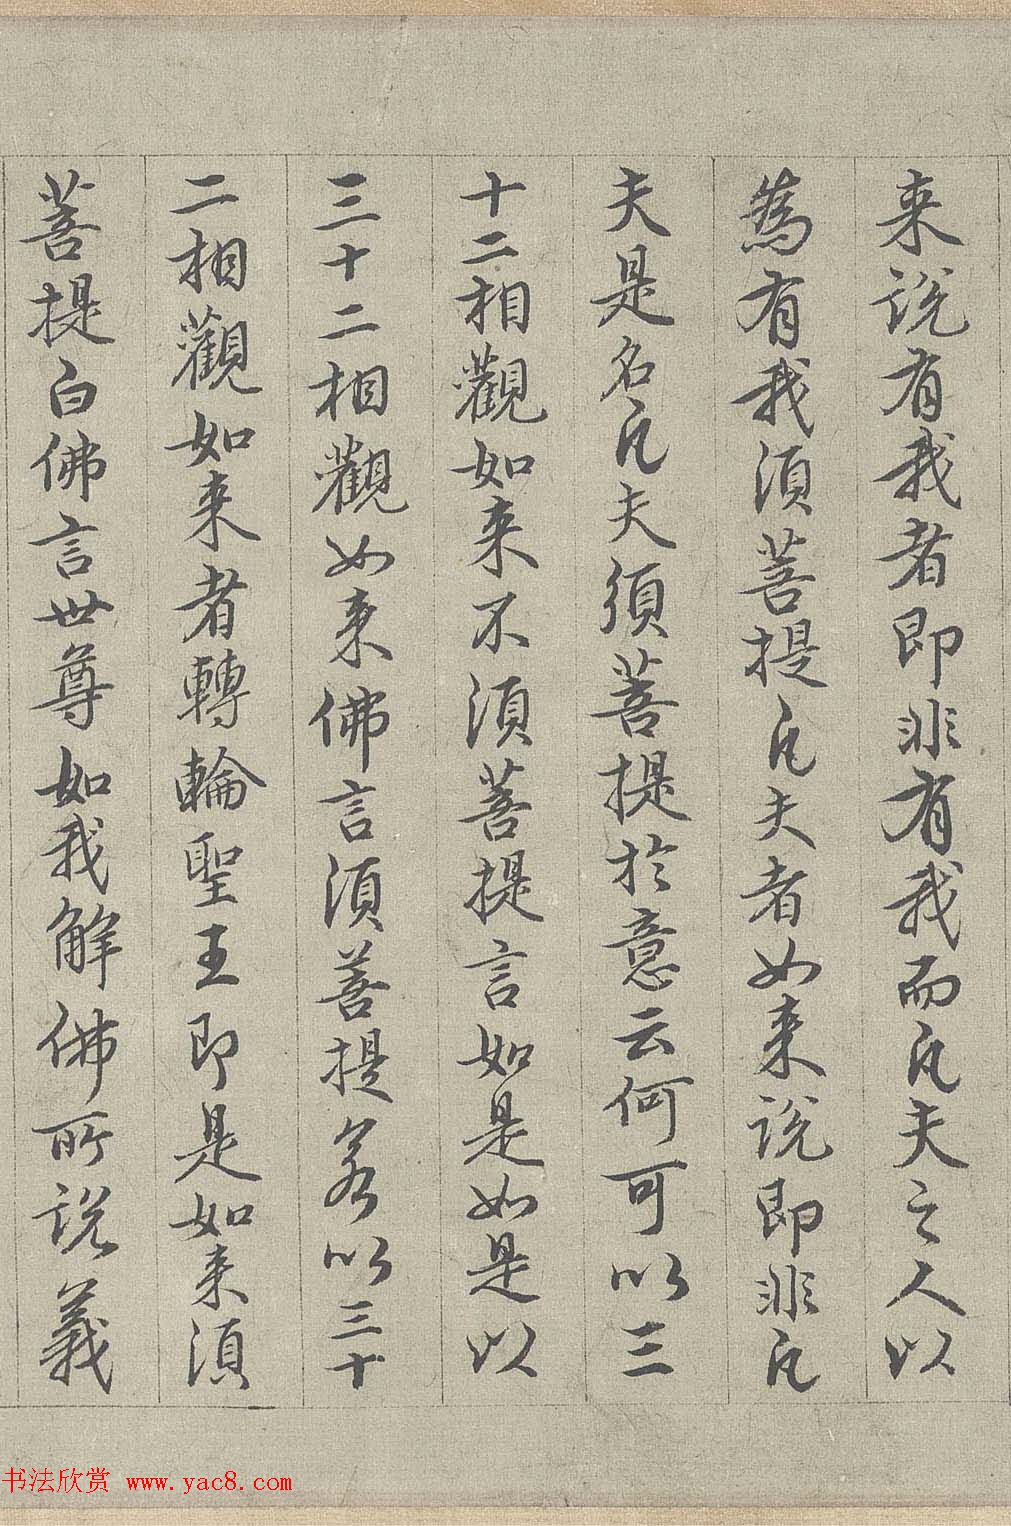 来说有我者即非有我而凡夫之人以
為有我须菩提凡夫者如来说即非凡
夫是名凡夫须菩提於意云何可以三
十二相觀如来不须菩提言如是如是以
三十二相觀如来佛言须菩提若以三十
二相觀如来者轉輪聖王即是如来须
菩提白佛言世尊如我解佛所说義
书法欣赏 www.yac8.com